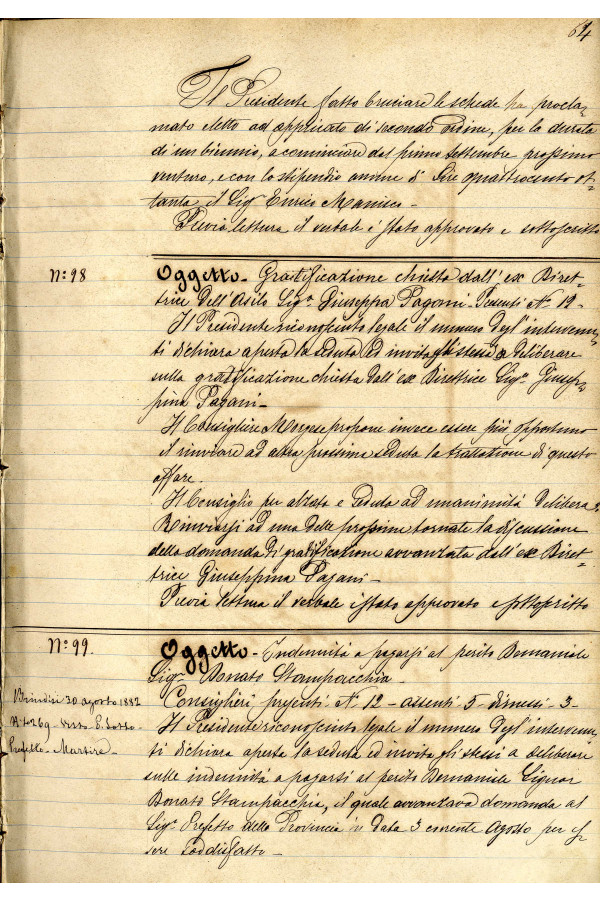 64
Il Presidente fatto bruciare le schede ha procla-
mato eletto ad applicato di secondo ordine, per la durata
di un biennio, a cominciare dal primo settembre prossimo
venturo, e con lo stipendio annuo di Lire quattrocento ot-
tanta, il Sig. Enrico Manisco -
Previa lettura il verbale è stato approvato e sottoscritto
N:° 98
Oggetto - Gratificazione chiesta dall' ex Diret-
trice dell'Asilo Sig.ª Giuseppina Pagani - Presenti N. 12 -
Il Presidente riconosciuto legale il numero degl' intervenu-
ti dichiara aperta la seduta ed invita gli stessi a deliberare
sulla gratificazione chiesta dall' ex Direttrice Sig.ª Giusep-
pina Pagani -
Il Consigliere Morgese propone invece essere più opportuno
il rinviare ad altra prossima seduta la trattazione di questo
affare
Il Consiglio per alzata e seduta ad unanimità delibera:
Rinviarsi ad una delle prossime tornate la discussione
della domanda di gratificazione avvanzata dall' ex Diret-
trice Giuseppina Pagani -
Previa lettura il verbale è stato approvato e sottoscritto
N:° 99.
Oggetto - Indennità a pagarsi al perito Demaniale
Sig.r Donato Stampacchia -
Brindisi 30 agosto 1882
N. 4269 - visto Il Sotto
Prefetto - Martire -
Consiglieri presenti N. 12 - assenti 5 - dimessi - 3 -
Il Presidente riconosciuto legale il numero degl' intervenu-
ti dichiara aperta la seduta ed invita gli stessi a deliberare
sulle indennità a pagarsi al perito Demaniale Signor
Donato Stampacchia, il quale avvanzava domanda al
Sig.r Prefetto della Provincia in data 3 corrente Agosto per es-
sere soddisfatto -